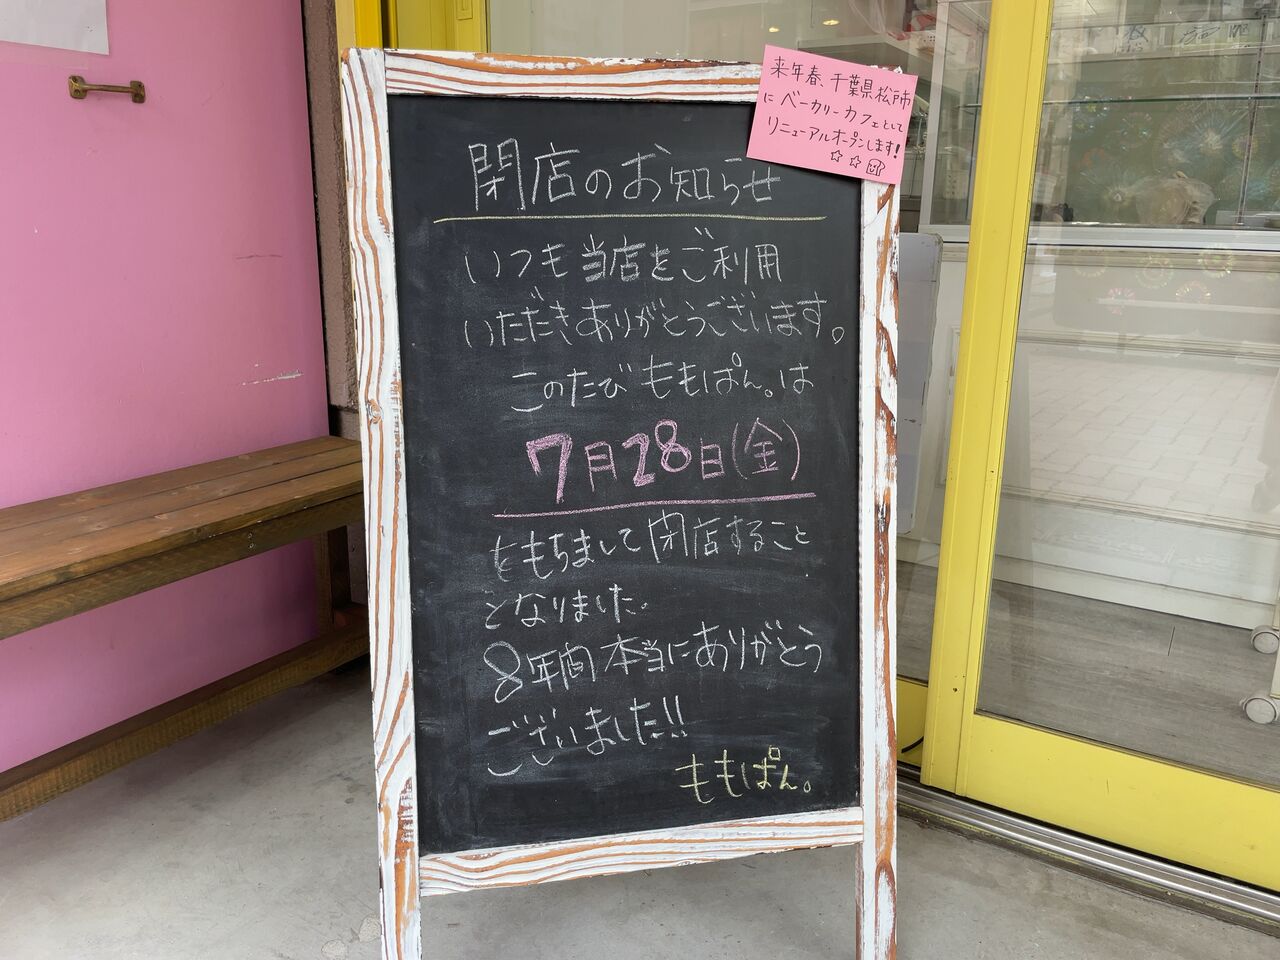 来年春、千葉県松戸市
にベーカリーカフェとして
リニューアルオープンします!
☆☆
閉店のお知らせ
いつも当店をご利用
いただきありがとうございます。
このたびももぱん。は
7月28日(金)
をもちまして閉店すること
となりました。
8年間本当にありがとう
ございました!!
ももぱん。